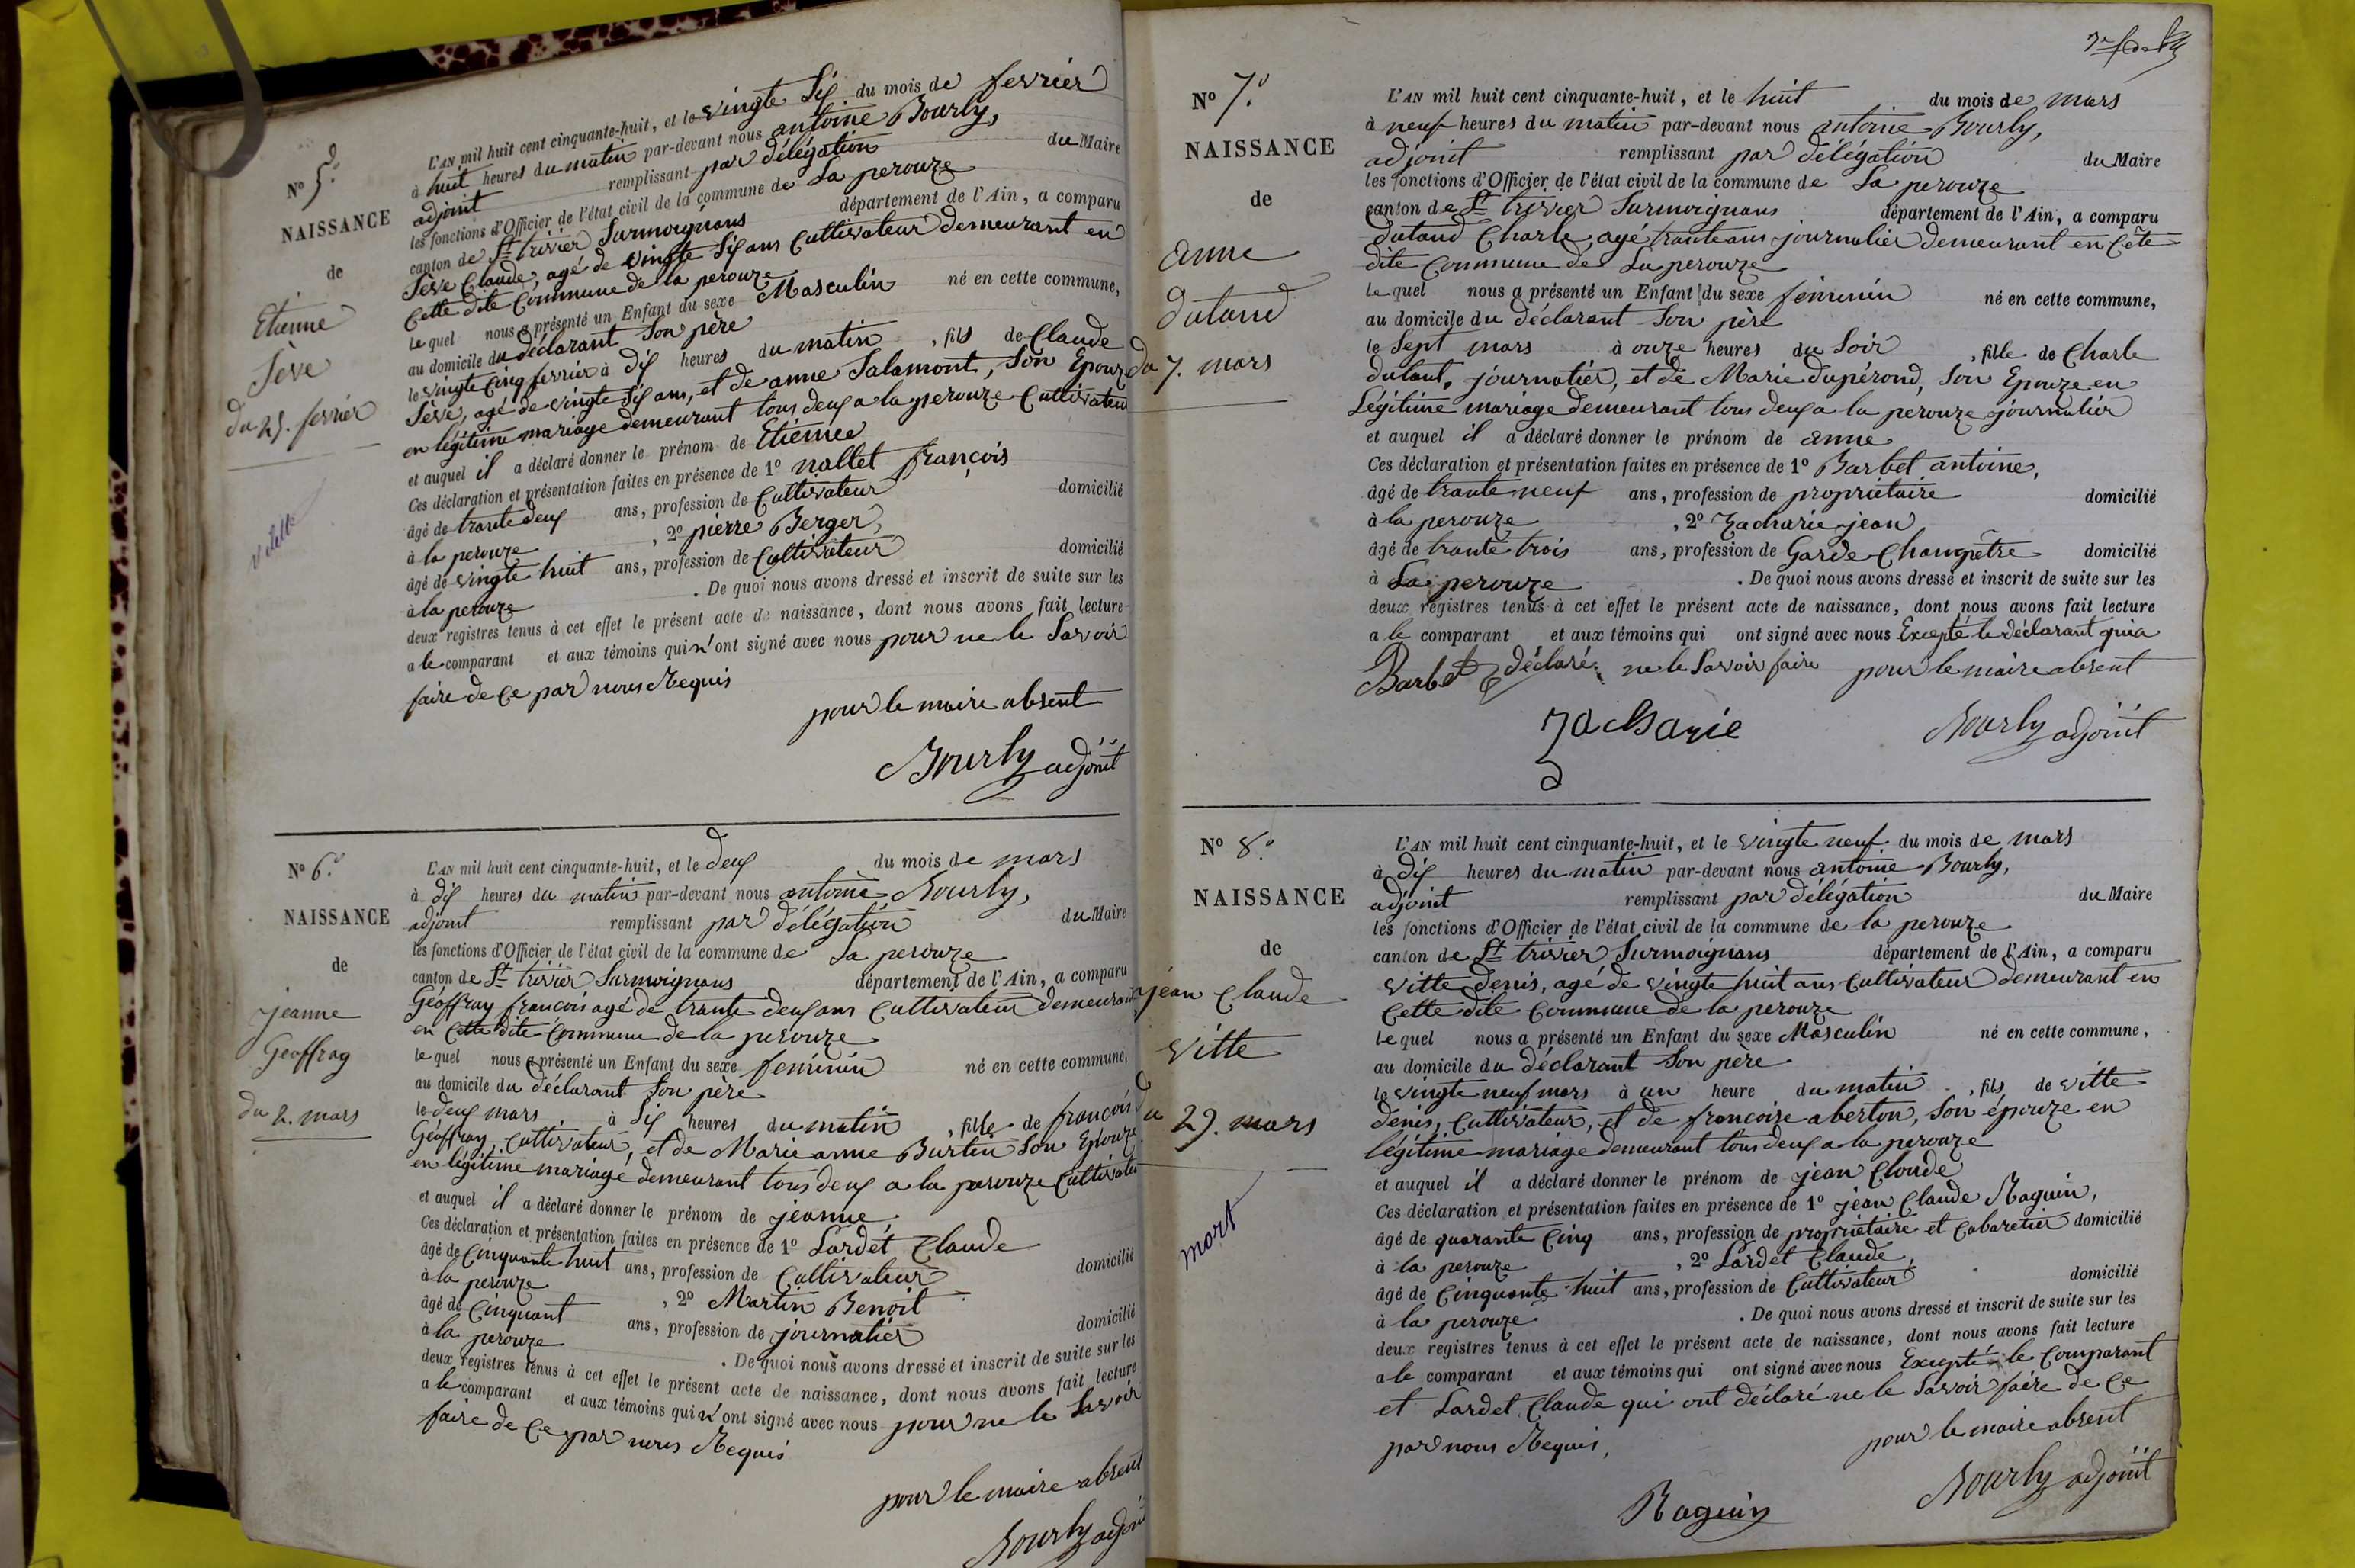 N° 5.°
NAISSANCE
de
Etienne
Sève
du 25. fevrier
L'AN mil huit cent cinquante-huit, et le vingte Six du mois de fevrier
à huit heures du matin par-devant nous antoine Bourly,
adjoint remplissant par délégation du Maire
les fonctions d'Officier de l'état civil de la commune de La perouze
canton de St trivier Surmoignans département de l'Ain, a comparu
Sève Claude, agé de vingte Six ans Cultivateur demeurant en
Cette dite Commune de la perouze
le quel nous a présenté un Enfant du sexe Masculin né en cette commune,
au domicile du déclarant Son père
le vingte Cinq fevrier à Dix heures du matin, fils de Claude
Sève, agé de vingte Six ans, et de anne Salamont, Son Epouze
en légitime mariage demeurant tous deux a la perouze Cultivateur
et auquel il a déclaré donner le prénom de Etienne
Ces déclaration et présentation faites en présence de 1° nallet françois
âgé de trante deux ans, profession de Cultivateur domicilié
à la perouze, 2° pierre Berger,
âgé de vingte huit ans, profession de Cultivateur domicilié
à la perouze. De quoi nous avons dressé et inscrit de suite sur les
deux registres tenus à cet effet le présent acte de naissance, dont nous avons fait lecture
a le comparant et aux témoins qui n'ont signé avec nous pour ne le Savoir
faire de Ce par nous Requis
pour le maire absent
Bourly adjoint
N° 6.°
NAISSANCE
de
jeanne
Geoffray
du 2. mars
L'AN mil huit cent cinquante-huit, et le deux du mois de mars
à dix heures du matin par-devant nous antoine Bourly,
adjoint remplissant par délégation du Maire
les fonctions d'Officier de l'état civil de la commune de La perouze
canton de St trivier Surmoignans département de l'Ain, a comparu
Géoffray françois agé de trante deux ans Cultivateur demeurant
en Cette dite Commune de la perouze
le quel nous a présenté un Enfant du sexe feminin né en cette commune,
au domicile du déclarant Son père
le deux mars à Six heures du matin, fille de françois
Géoffray, Cultivateur, et de Marie anne Burtin Son Epouze
en légitime mariage demeurant tous deux a la perouze Cultivateur
et auquel il a déclaré donner le prénom de jeanne
Ces déclaration et présentation faites en présence de 1° Lardet Claude
âgé de Cinquante huit ans, profession de Cultivateur domicilié
à la perouze, 2° Martin Benoit
âgé de Cinquant ans, profession de journalier domicilié
à la perouze. De quoi nous avons dressé et inscrit de suite sur les
deux registres tenus à cet effet le présent acte de naissance, dont nous avons fait lecture
a le comparant et aux témoins qui n'ont signé avec nous pour ne le Savoir
faire de Ce par nous Requis
pour le maire absent
Bourly adjoint
N° 7.°
NAISSANCE
de
anne
dutaud
du 7. mars
L'AN mil huit cent cinquante-huit, et le huit du mois de mars
à neuf heures du matin par-devant nous antoine Bourly,
adjoint remplissant par délégation du Maire
les fonctions d'Officier de l'état civil de la commune de La perouze
canton de St trivier Surmoignans département de l'Ain, a comparu
dutaud Charle, agé trante ans journalier demeurant en Cète
dite Commune de La perouze
le quel nous a présenté un Enfant du sexe feminin né en cette commune,
au domicile du déclarant Son père
le Sept mars à onze heures du Soir, fille de Charle
dutaut, journalier, et de Marie dupérond, Son Epouze en
Légitime mariage demeurant tous deux a la perouze journalier
et auquel il a déclaré donner le prénom de anne
Ces déclaration et présentation faites en présence de 1° Barbet antoine,
âgé de trante neuf ans, profession de propriétaire domicilié
à la perouze, 2° Zacharie jean
âgé de trante trois ans, profession de Garde Champêtre domicilié
à La perouze. De quoi nous avons dressé et inscrit de suite sur les
deux registres tenus à cet effet le présent acte de naissance, dont nous avons fait lecture
a le comparant et aux témoins qui ont signé avec nous Excepté le déclarant qui a
déclaré ne le Savoir faire pour le maire absent
Barbet
Zacharie
Bourly adjoint
N° 8.°
NAISSANCE
de
jean Claude
vitte
du 29. mars
mort
L'AN mil huit cent cinquante-huit, et le vingte neuf du mois de mars
à Dix heures du matin par-devant nous antoine Bourly,
adjoint remplissant par délégation du Maire
les fonctions d'Officier de l'état civil de la commune de la perouze
canton de St trivier Surmoignans département de l'Ain, a comparu
vitte denis, agé de vingte huit ans Cultivateur demeurant en
Cette dite Commune de la perouze
le quel nous a présenté un Enfant du sexe Masculin né en cette commune,
au domicile du déclarant Son père
le vingte neuf mars à un heure du matin, fils de vitte
denis, Cultivateur, et de françoise aberton, Son épouze en
légitime mariage demeurant tous deux a la perouze
et auquel il a déclaré donner le prénom de jean Claude
Ces déclaration et présentation faites en présence de 1° jean Claude Raguin,
âgé de quarante Cinq ans, profession de propriétaire et Cabaretier domicilié
à la perouze, 2° Lardet Claude,
âgé de Cinquante huit ans, profession de Cultivateur domicilié
à la perouze. De quoi nous avons dressé et inscrit de suite sur les
deux registres tenus à cet effet le présent acte de naissance, dont nous avons fait lecture
a le comparant et aux témoins qui ont signé avec nous Excepté le Comparant
et Lardet Claude qui ont déclaré ne le Savoir faire de Ce
par nous Requis,
pour le maire absent
Raguin
Bourly adjoint